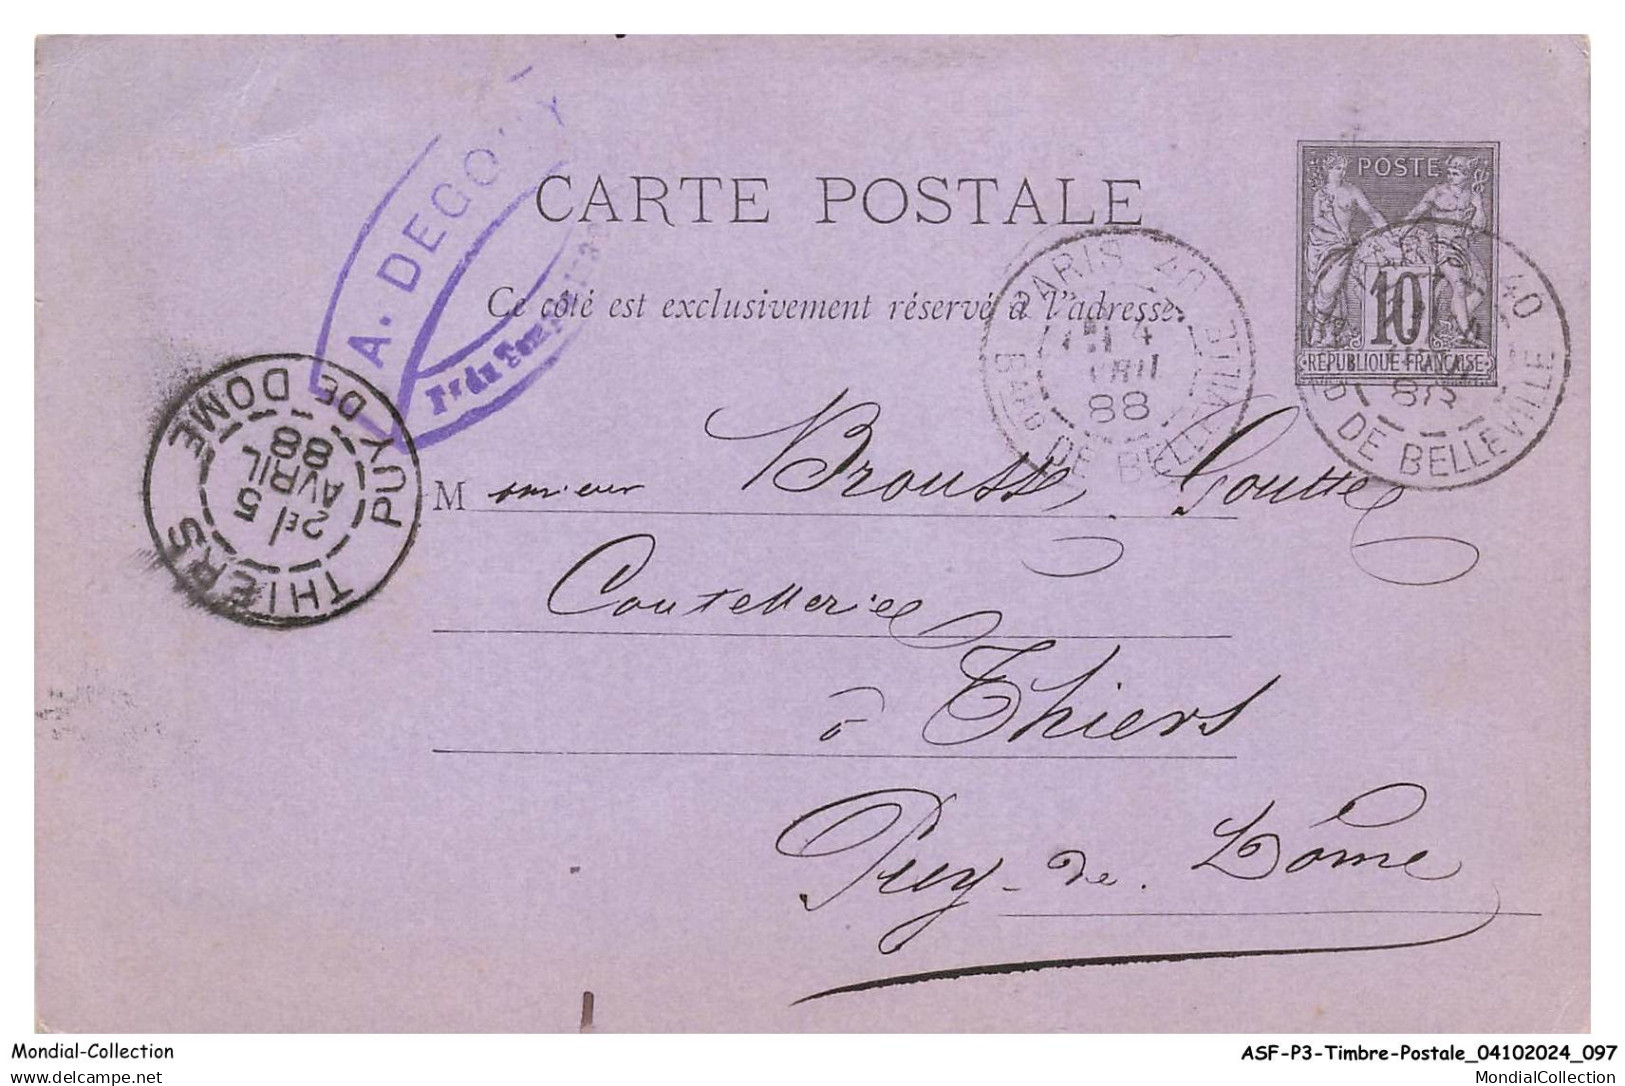 A. DEGOUY
Fg du Temple
CARTE POSTALE
Ce côté est exclusivement réservé à l'adresse.
POSTE
10
REPUBLIQUE FRANÇAISE
PARIS 40
4
AVRIL
88
BARD DE BELLEVILLE
40
88
BD DE BELLEVILLE
THIERS
2E/
5
AVRIL
88
PUY DE DOME
Monsieur Brousse, Goutte
Coutelleries
à Thiers
Puy-de-Dôme
Mondial-Collection
ASF-P3-Timbre-Postale_04102024_097
.delcampe.net
MondialCollection